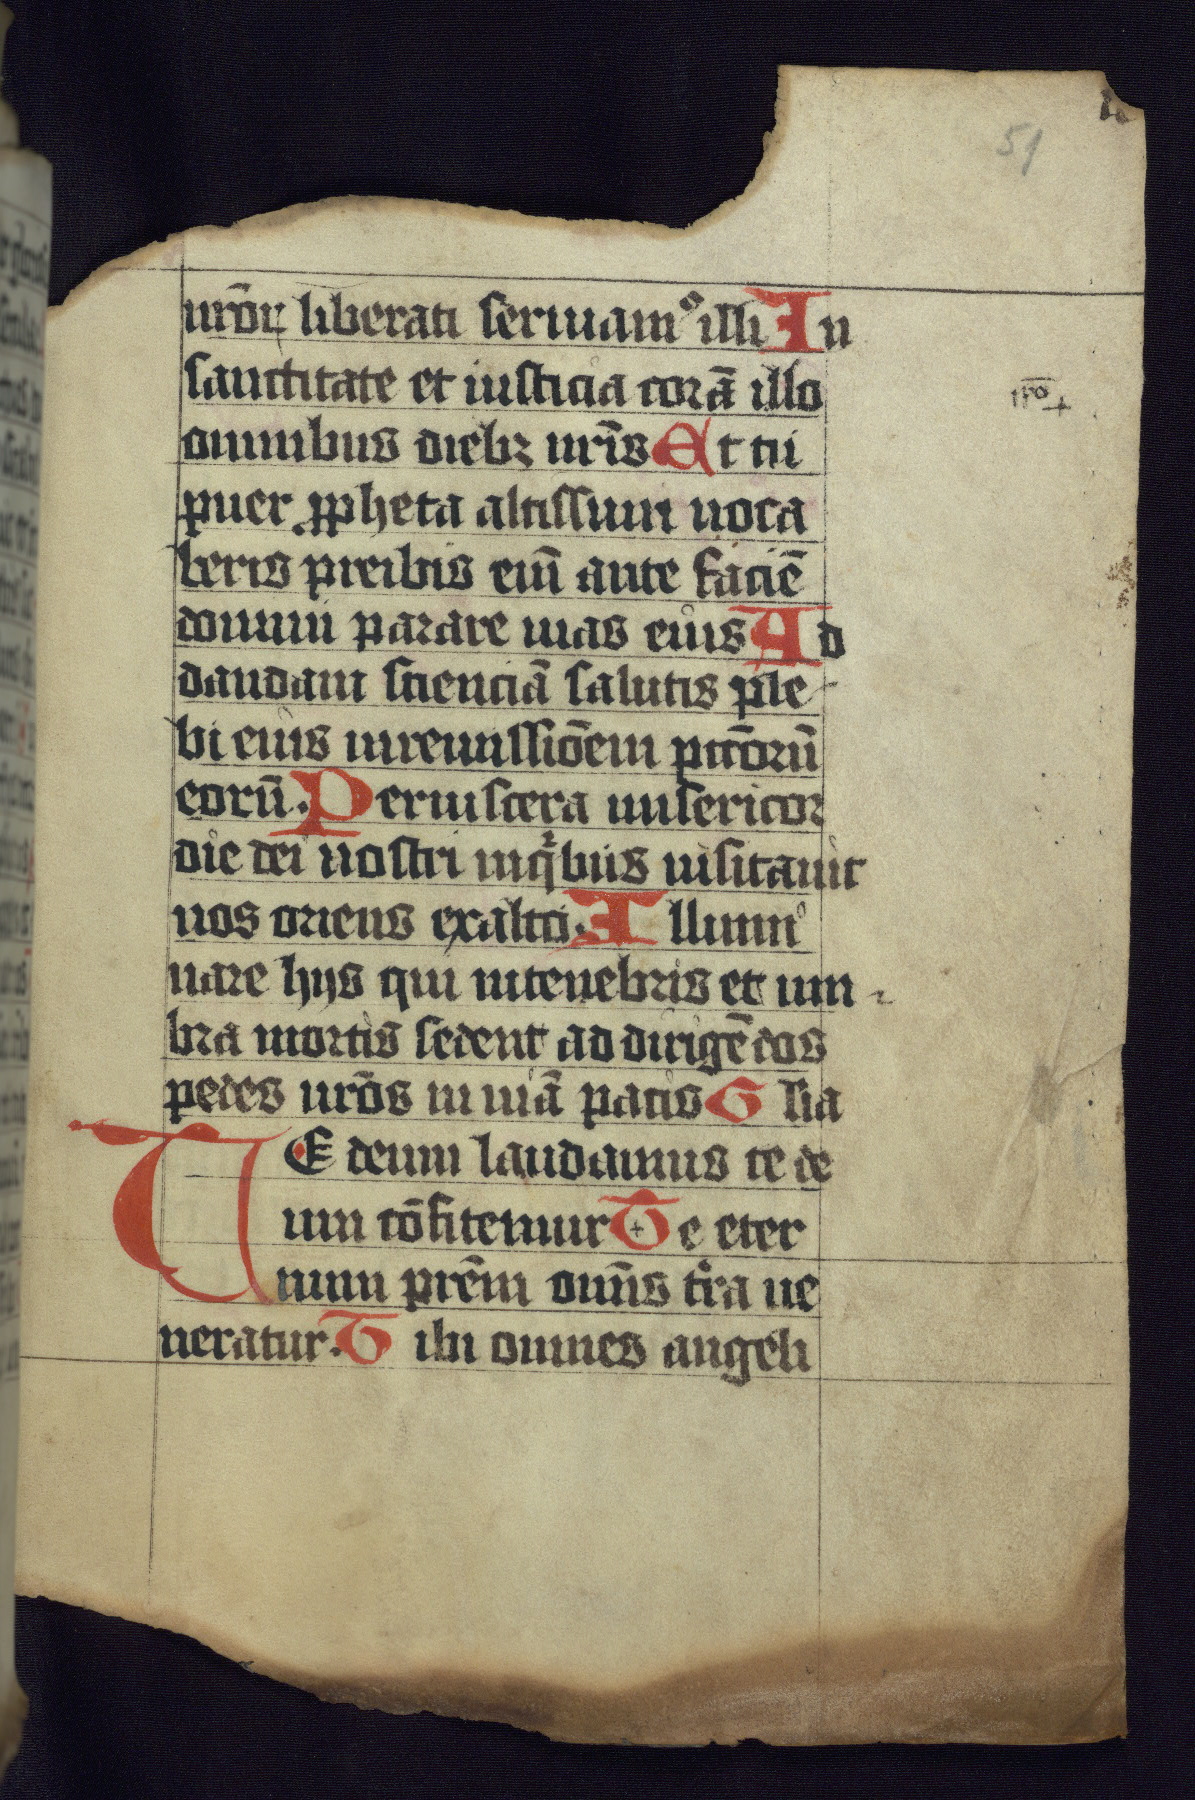 59
nr̄oꝝ liberati seruiamꝰ illi In
sanctitate et iusticia corā illo
omnibus diebꝫ nr̄is Et tu
puer ꝓpheta altissimi uoca
beris preibis eni̅ ante faciē
domini parare uias eius Ad
dandam scienciā salutis ple
bi eius in remissiōem pct̄orū
eorū. Per uiscera misericor
die dei nostri in qͥbus uisitauit
nos oriens ex alto. Illumi
nare hijs qui in tenebris et um
bra mortis sedent ad dirigēdos
pedes nr̄os in uiā pacis Glia
TE deum laudamus te de
um cōfitemur Te eter
num prēm omīs tͬra ue
neratur. Tibi omnes angeli